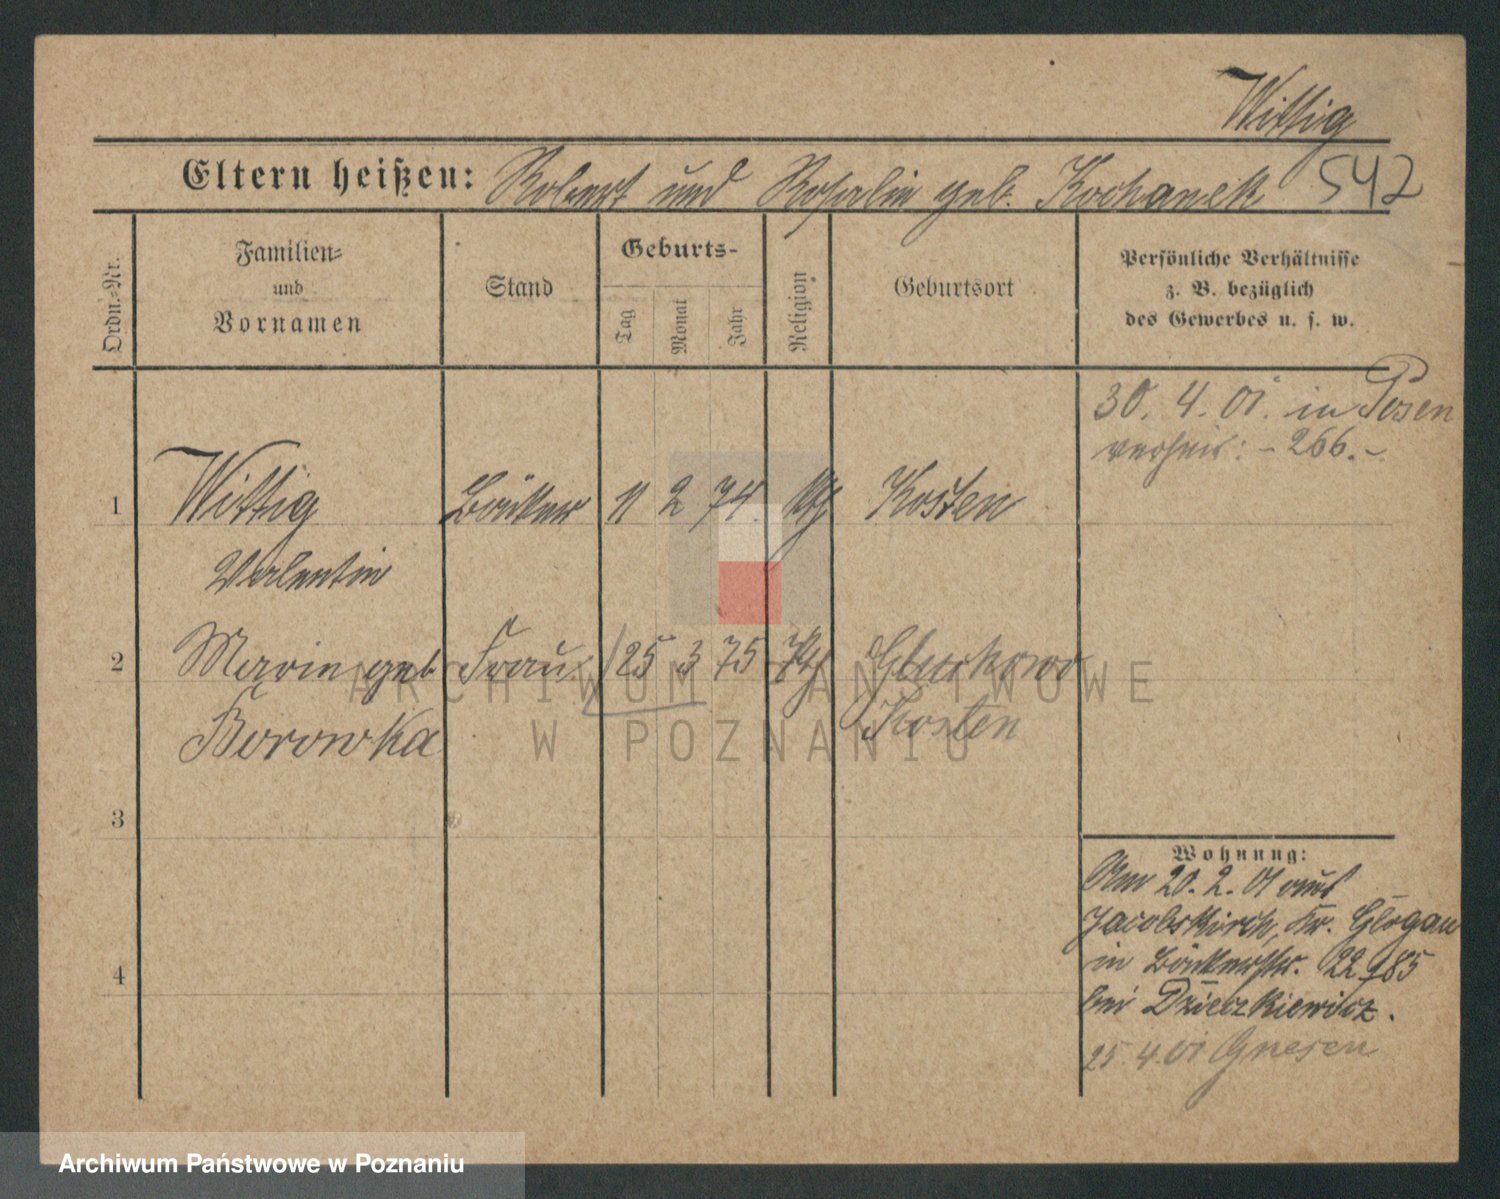 Wittig
Eltern heißen: Robert und Rosalie geb. Kochanek 542
Ordn.-Nr.
Familien-
und
Vornamen
Stand
Geburts-
Tag
Monat
Jahr
Religion
Geburtsort
Persönliche Verhältnisse
z. B. bezüglich
des Gewerbes u. s. w.
30. 4. 01. in Posen
verheir: - 266. -
1 Wittig Bäcker 11 2 74. kth Kosten
Valentin
2 Marie geb Frau 25 3 75 kth
Borowka Kosten
3
4
Wohnung:
Am 20. 2. 01 aus
Jacobskirch, Kr. Glogau
in Bäckerstr. 22
bei Dzieczkiewicz.
25. 4. 01 Gnesen
ARCHIWUM PAŃSTWOWE
W POZNANIU
Archiwum Państwowe w Poznaniu